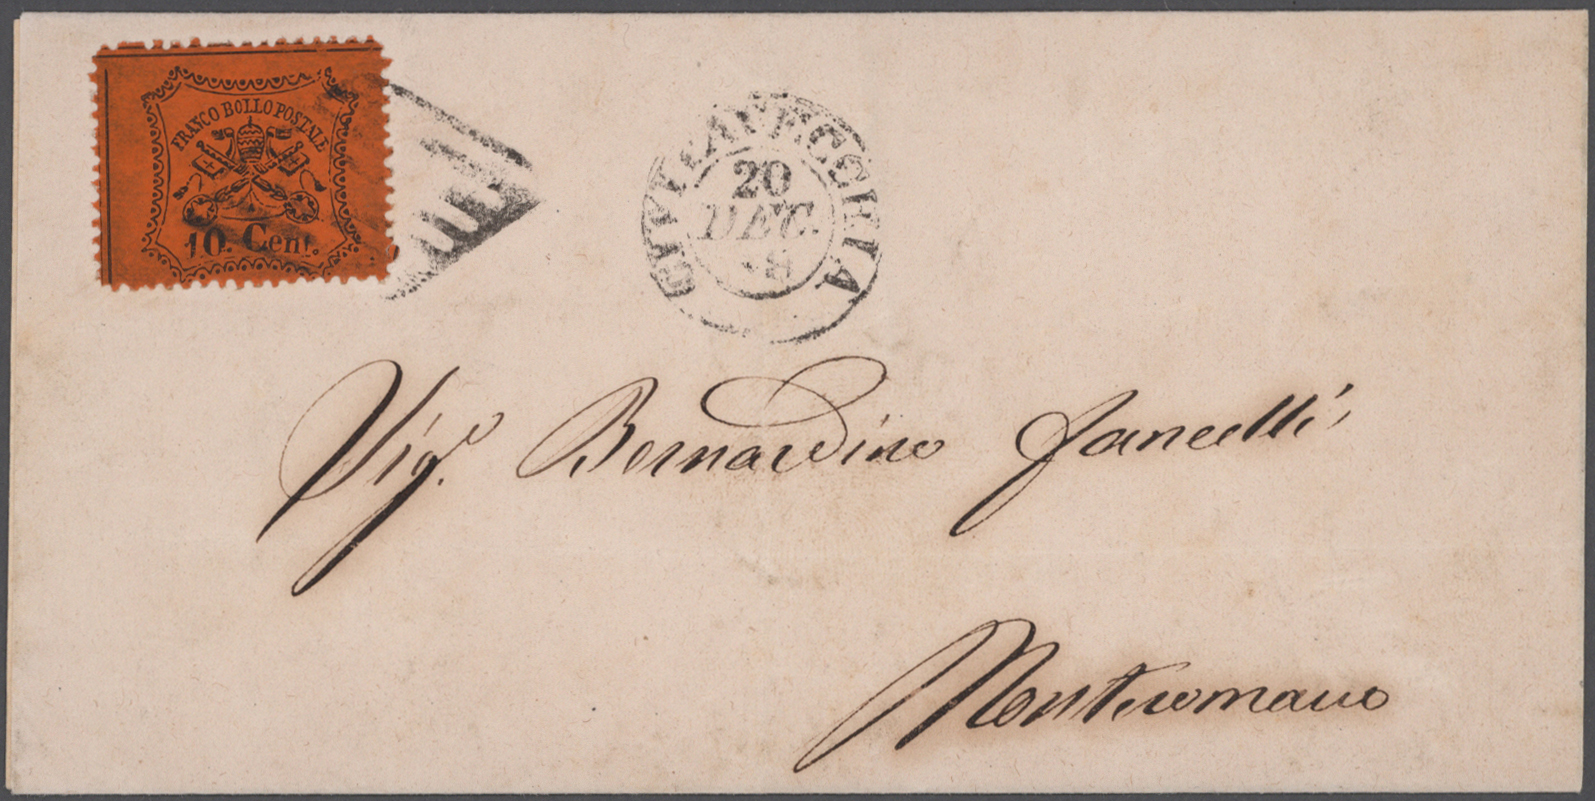 FRANCO BOLLO POSTALE
10. Cent.
CIVITAVECCHIA
20
DEC.
Sig.r Bernardino Jancelli
Monteromano